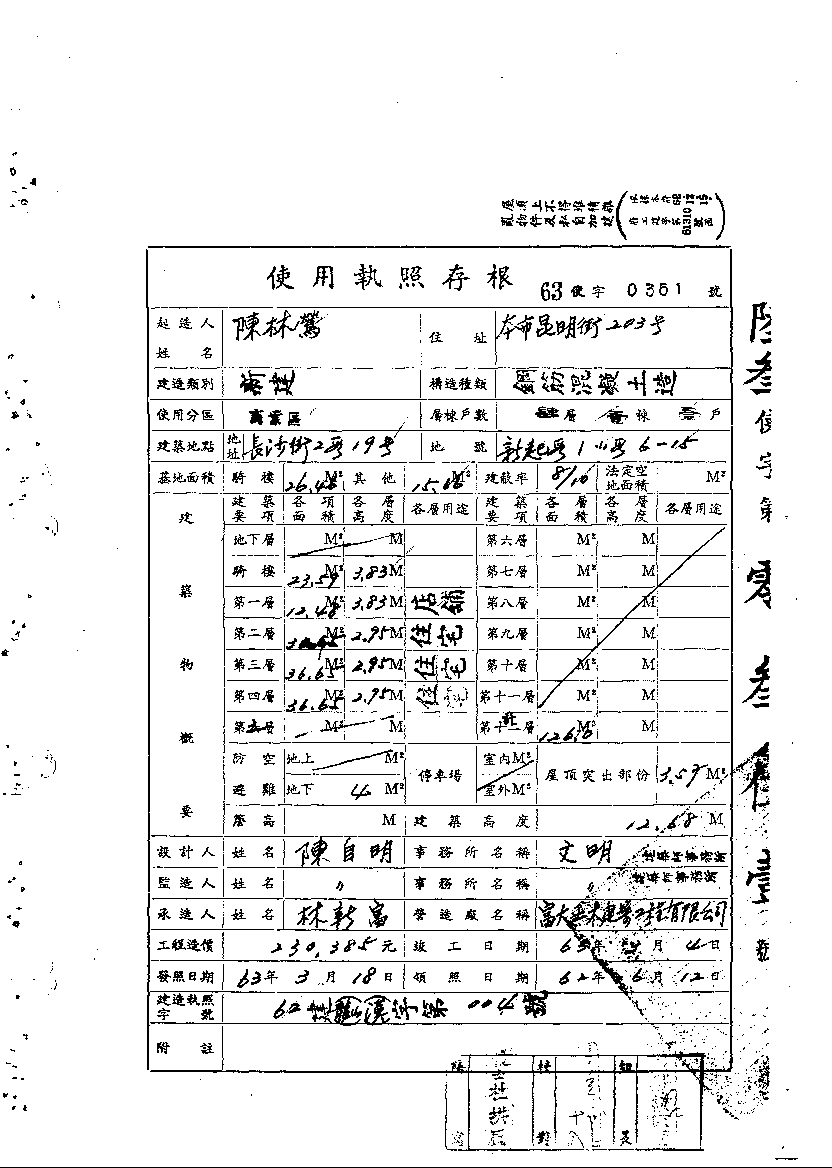 屋頂上不得堆積雜
亂物件及私自加建
使用執照存根 63 使字 0361 號
起造人姓名 陳林鶯 住址 本市昆明街203号
建造類別 新建 構造種類 鋼筋混凝土造
使用分區 商業區 層棟戶數 肆層 壹棟 壹戶
建築地點 地址 長沙街2段19号 地號 新起段1小段6-15
基地面積 騎樓 26.48 M² 其他 M² 建蔽率 8/10 法定空地面積 M²
建築物概要
建築要項 各項面積 各層高度 各層用途 建築要項 各層面積 各層高度 各層用途
地下層 M² M 第六層 M² M
騎樓 23.59 M² 3.83 M 第七層 M² M
第一層 12.48 M² 3.83 M 店鋪 第八層 M² M
第二層 M² 2.95 M 住宅 第九層 M² M
第三層 36.65 M² 2.95 M 住宅 第十層 M² M
第四層 36.65 M² 2.95 M 住宅 第十一層 M² M
第五層 M² M 第十二層 計 M² M
防空避難 地上 M² 停車場 室內 M² 屋頂突出部份 3.57 M²
地下 4 M² 室外 M²
簷高 M 建築高度 12.68 M
設計人 姓名 陳自明 事務所名稱 文明 建築師事務所
監造人 姓名 〃 事務所名稱 〃 建築師事務所
承造人 姓名 林新富 營造廠名稱 富大土木建築工程有限公司
工程造價 230,385 元 竣工日期 63年 月 4日
發照日期 63年 3月 18日 領照日期 62年 6月 12日
建造執照字號 62建 字第 004號
附註
使字第
零
叁
號
校對